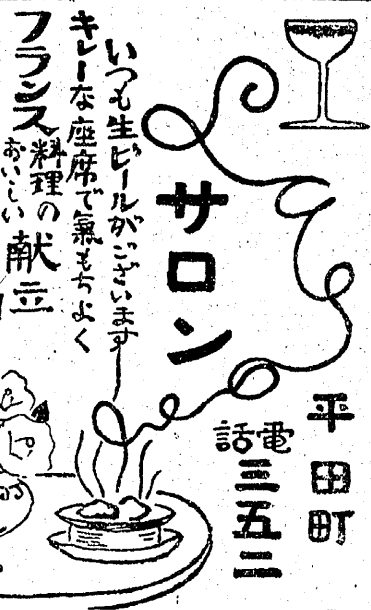 平田町
電話
三五二
サロン
いつも生ビールがございます
キレーな座席で氣もちよく
フランス料理の
おいしい
献立